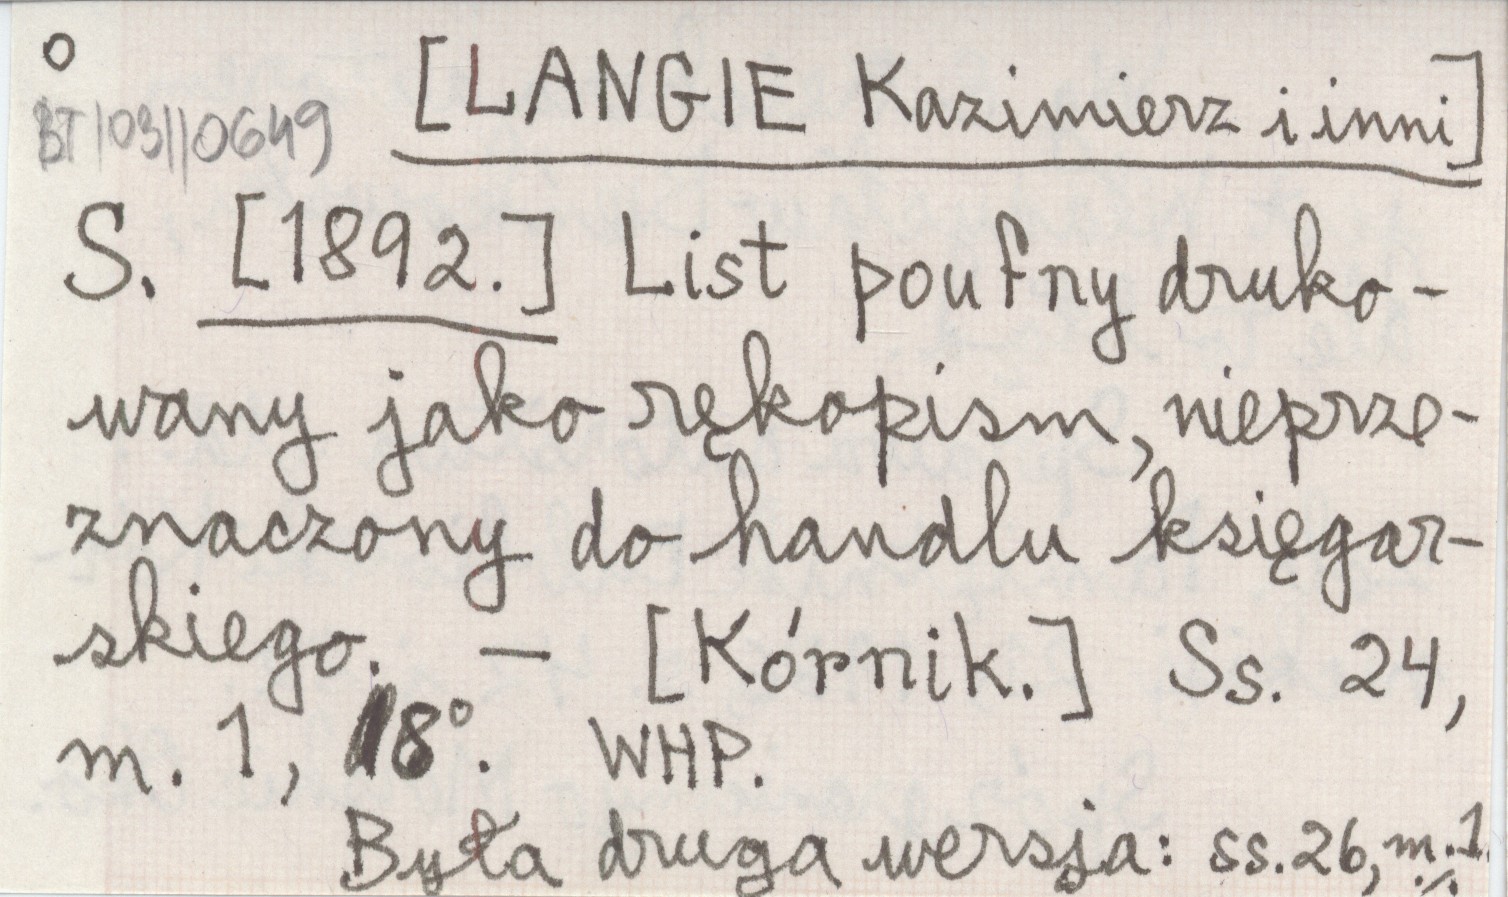 o
[LANGIE Kazimierz i inni]
BT|03||0649
S. [1892.] List poufny druko-
wany jako rękopism, nieprze-
znaczony do handlu księgar-
skiego. — [Kórnik.] Ss. 24,
m. 1, 18°. WHP.
Była druga wersja: ss. 26, m. 1.